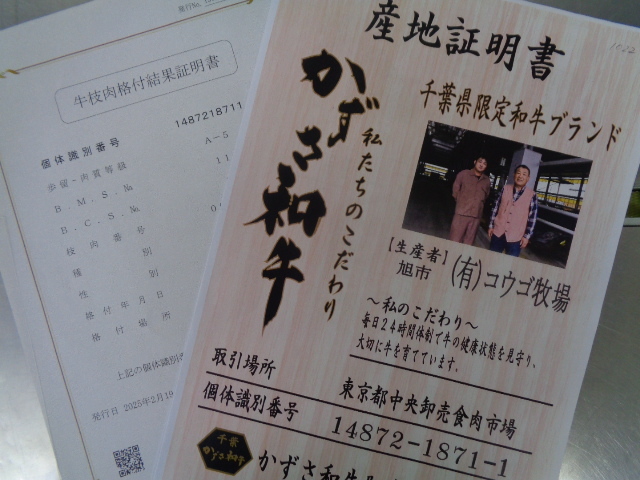 牛枝肉格付結果証明書
個体識別番号 1487218711
歩留・肉質等級 A-5
B.M.S.No. 11
B.C.S.No.
枝肉番号
種別
性別
格付年月日
格付場所
上記の個体識別
発行日 2025年2月19
産地証明書
千葉県限定和牛ブランド
かずさ和牛
私たちのこだわり
[生産者]
旭市
(有)コウゴ牧場
~私のこだわり~
毎日24時間体制で牛の健康状態を見守り、
大切に牛を育てています。
取引場所 東京都中央卸売食肉市場
個体識別番号 14872-1871-1
千葉
かずさ和牛
かずさ和牛